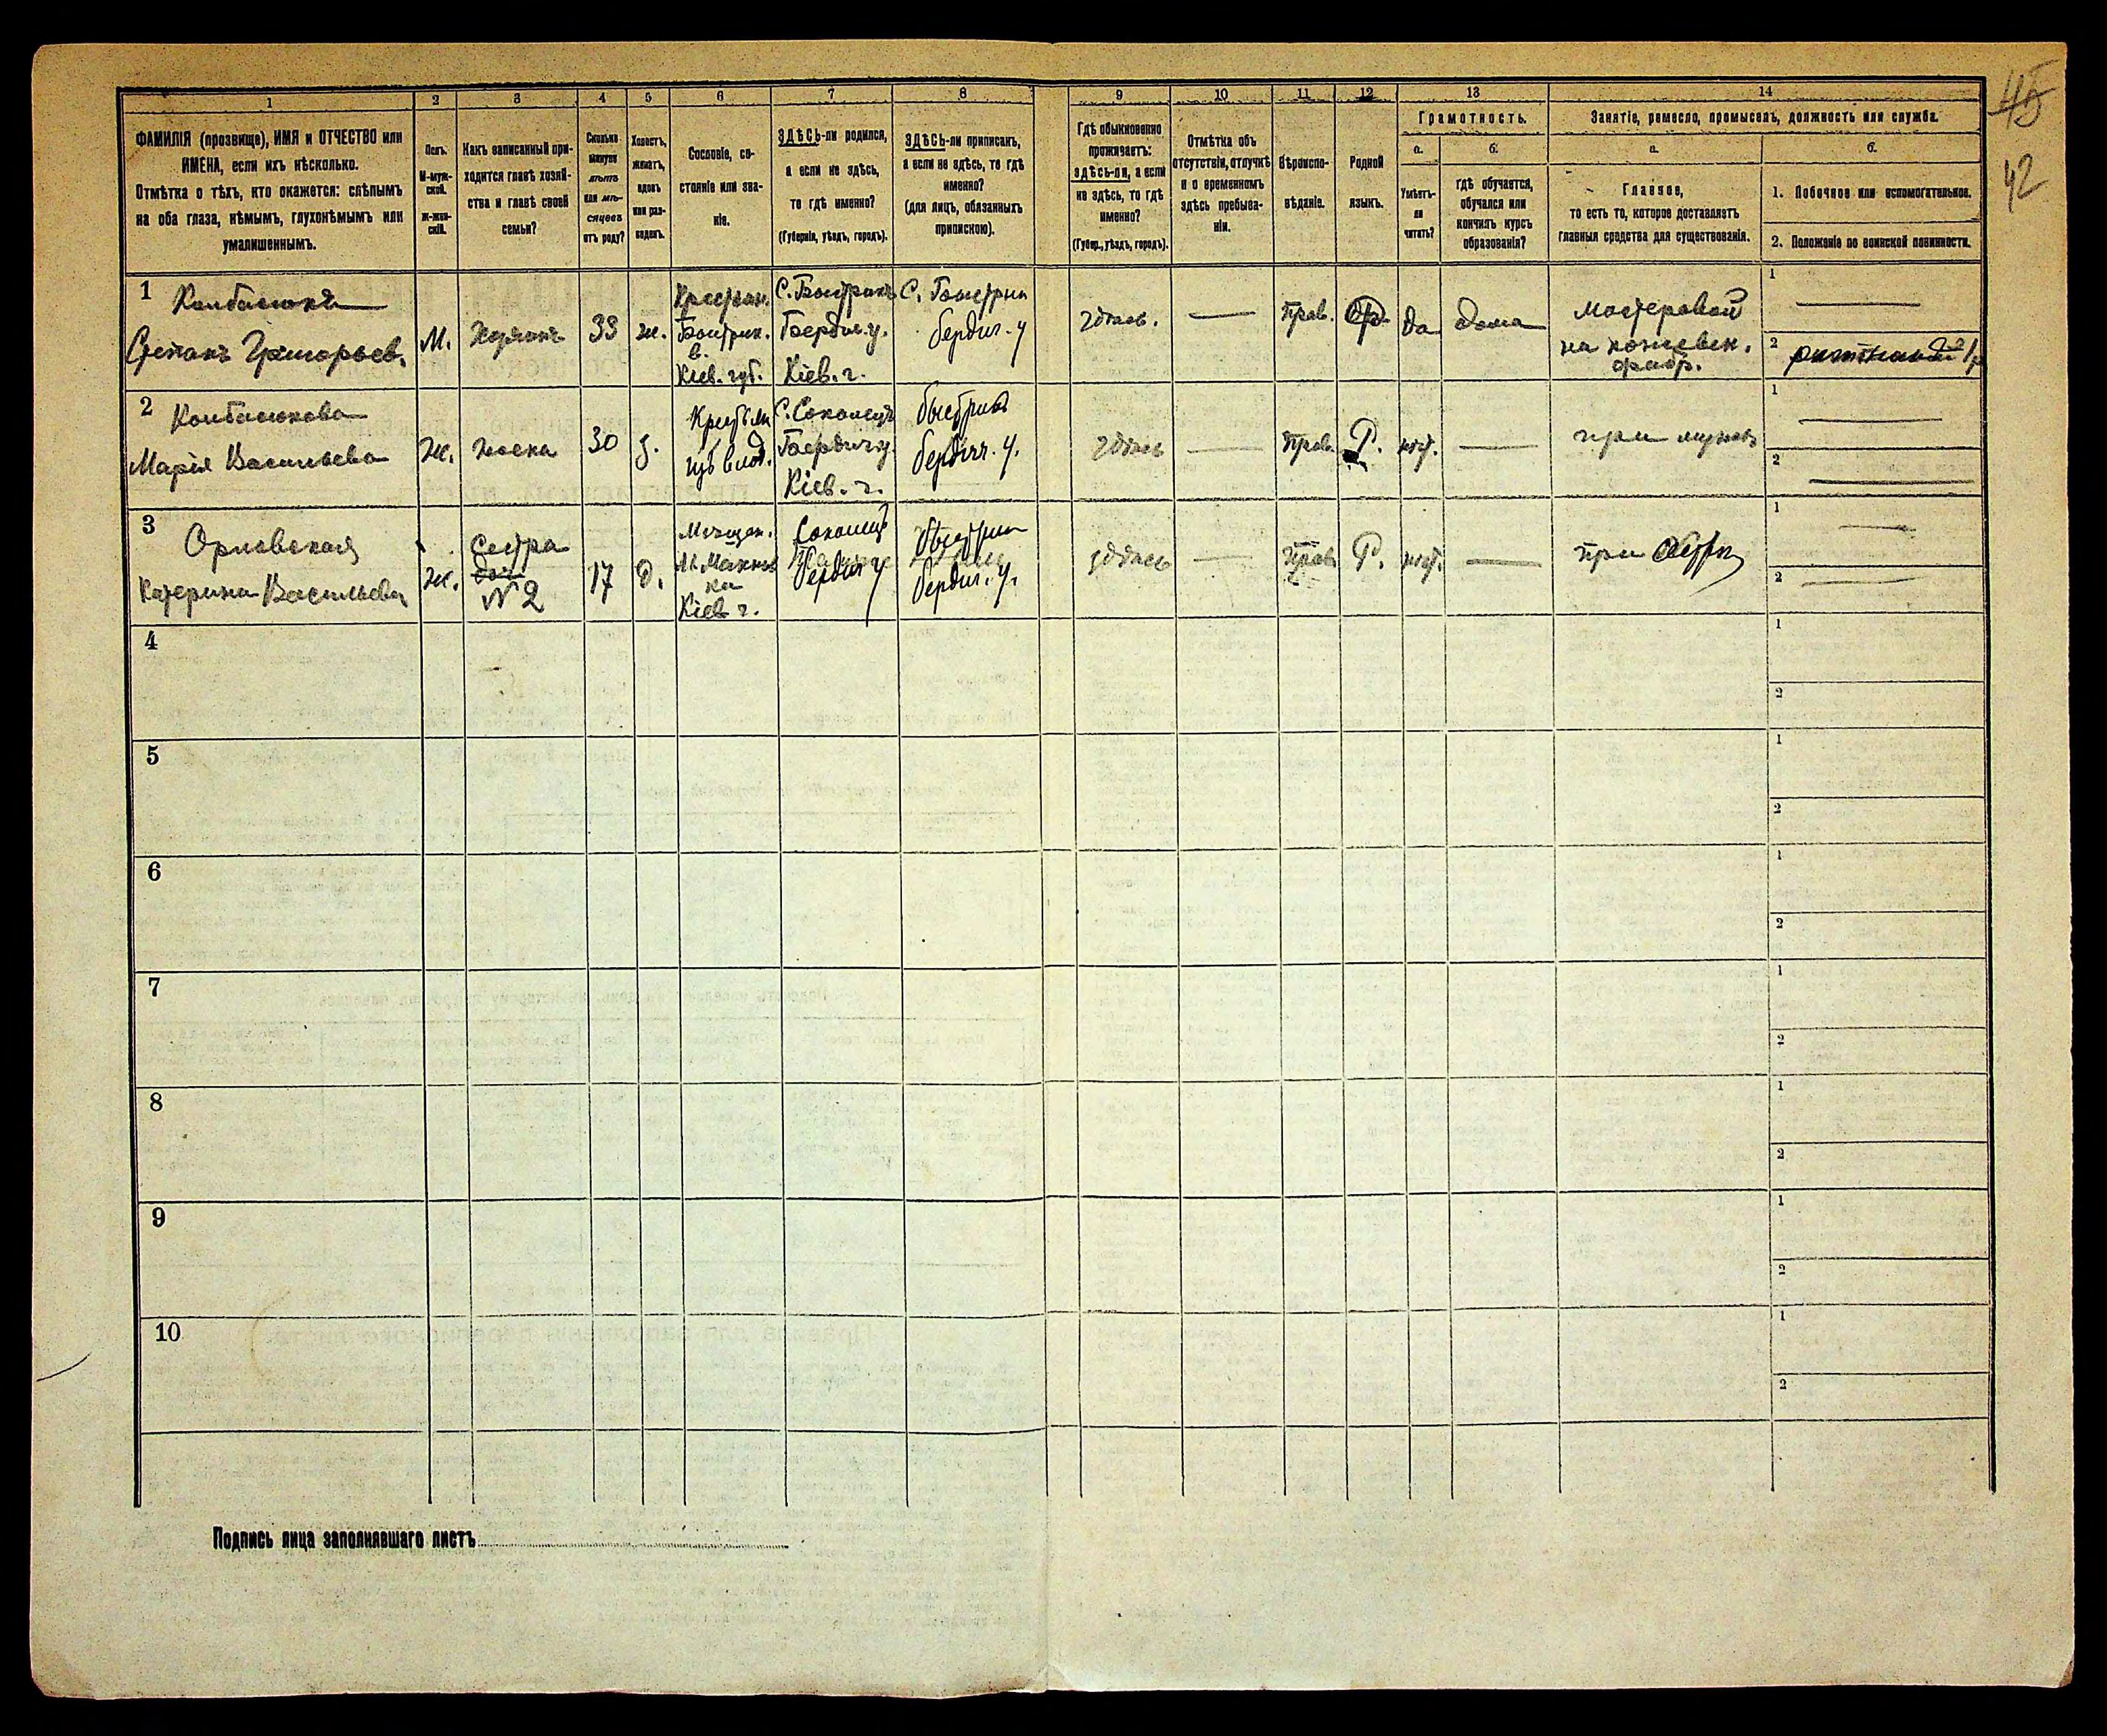 45
42
1
2
3
4
5
6
7
8
9
10
11
12
13
14
ФАМИЛІЯ (прозвище), ИМЯ и ОТЧЕСТВО или
ИМЕНА, если ихъ нѣсколько.
Отмѣтка о тѣхъ, кто окажется: слѣпымъ
на оба глаза, нѣмымъ, глухонѣмымъ или
умалишеннымъ.
Полъ.
М-муж-
ской.
Ж-жен-
скій.
Какъ записанный при-
ходится главѣ хозяй-
ства и главѣ своей
семьи?
Сколько
минуло
лѣтъ
или мѣ-
сяцевъ
отъ роду?
Холостъ,
женатъ,
вдовъ
или раз-
веденъ.
Сословіе, со-
стояніе или зва-
ніе.
ЗДѢСЬ-ли родился,
а если не здѣсь,
то гдѣ именно?
(Губернія, уѣздъ, городъ).
ЗДѢСЬ-ли приписанъ,
а если не здѣсь, то гдѣ
именно?
(для лицъ, обязанныхъ
припискою).
Гдѣ обыкновенно
проживаетъ:
здѣсь-ли, а если
не здѣсь, то гдѣ
именно?
(Губер., уѣздъ, городъ).
Отмѣтка объ
отсутствіи, отлучкѣ
и о временномъ
здѣсь пребыва-
ніи.
Вѣроиспо-
вѣданіе.
Родной
языкъ.
Грамотность.
а.
б.
Умѣетъ-
ли
читать?
гдѣ обучается,
обучался или
кончилъ курсъ
образованія?
Занятіе, ремесло, промыселъ, должность или служба.
а.
б.
Главное,
то есть то, которое доставляетъ
главныя средства для существованія.
1. Побочное или вспомогательное.
2. Положеніе по воинской повинности.
1
Колбасюкъ
Степанъ Григорьев.
М.
33
ж.
Крестьян.
Кіев. губ.
Бердич. у.
Кіев. г.
бердич. у
здѣсь.
Прав.
да
дома
Мастеровой
на кожевен.
фабр.
1
2
2
Колбасюкова
Марія Васильева
Ж.
жена
30
з.
С. Соколецъ
Бердич у.
Кіев. г.
Быстрика
бердич. у.
здѣсь
Прав.
Р.
нѣт.
при мужѣ
1
2
3
Орловская
Катерина Васильева
Ж.
Сестра
№ 2
17
д.
Мѣщан.
Кіев г.
Соколец
бердич у
Бердич. у.
здѣсь
Прав.
Р.
нѣт.
при сестрѣ
1
2
4
1
2
5
1
2
6
1
2
7
1
2
8
1
2
9
1
2
10
1
2
Подпись лица заполнявшаго листъ